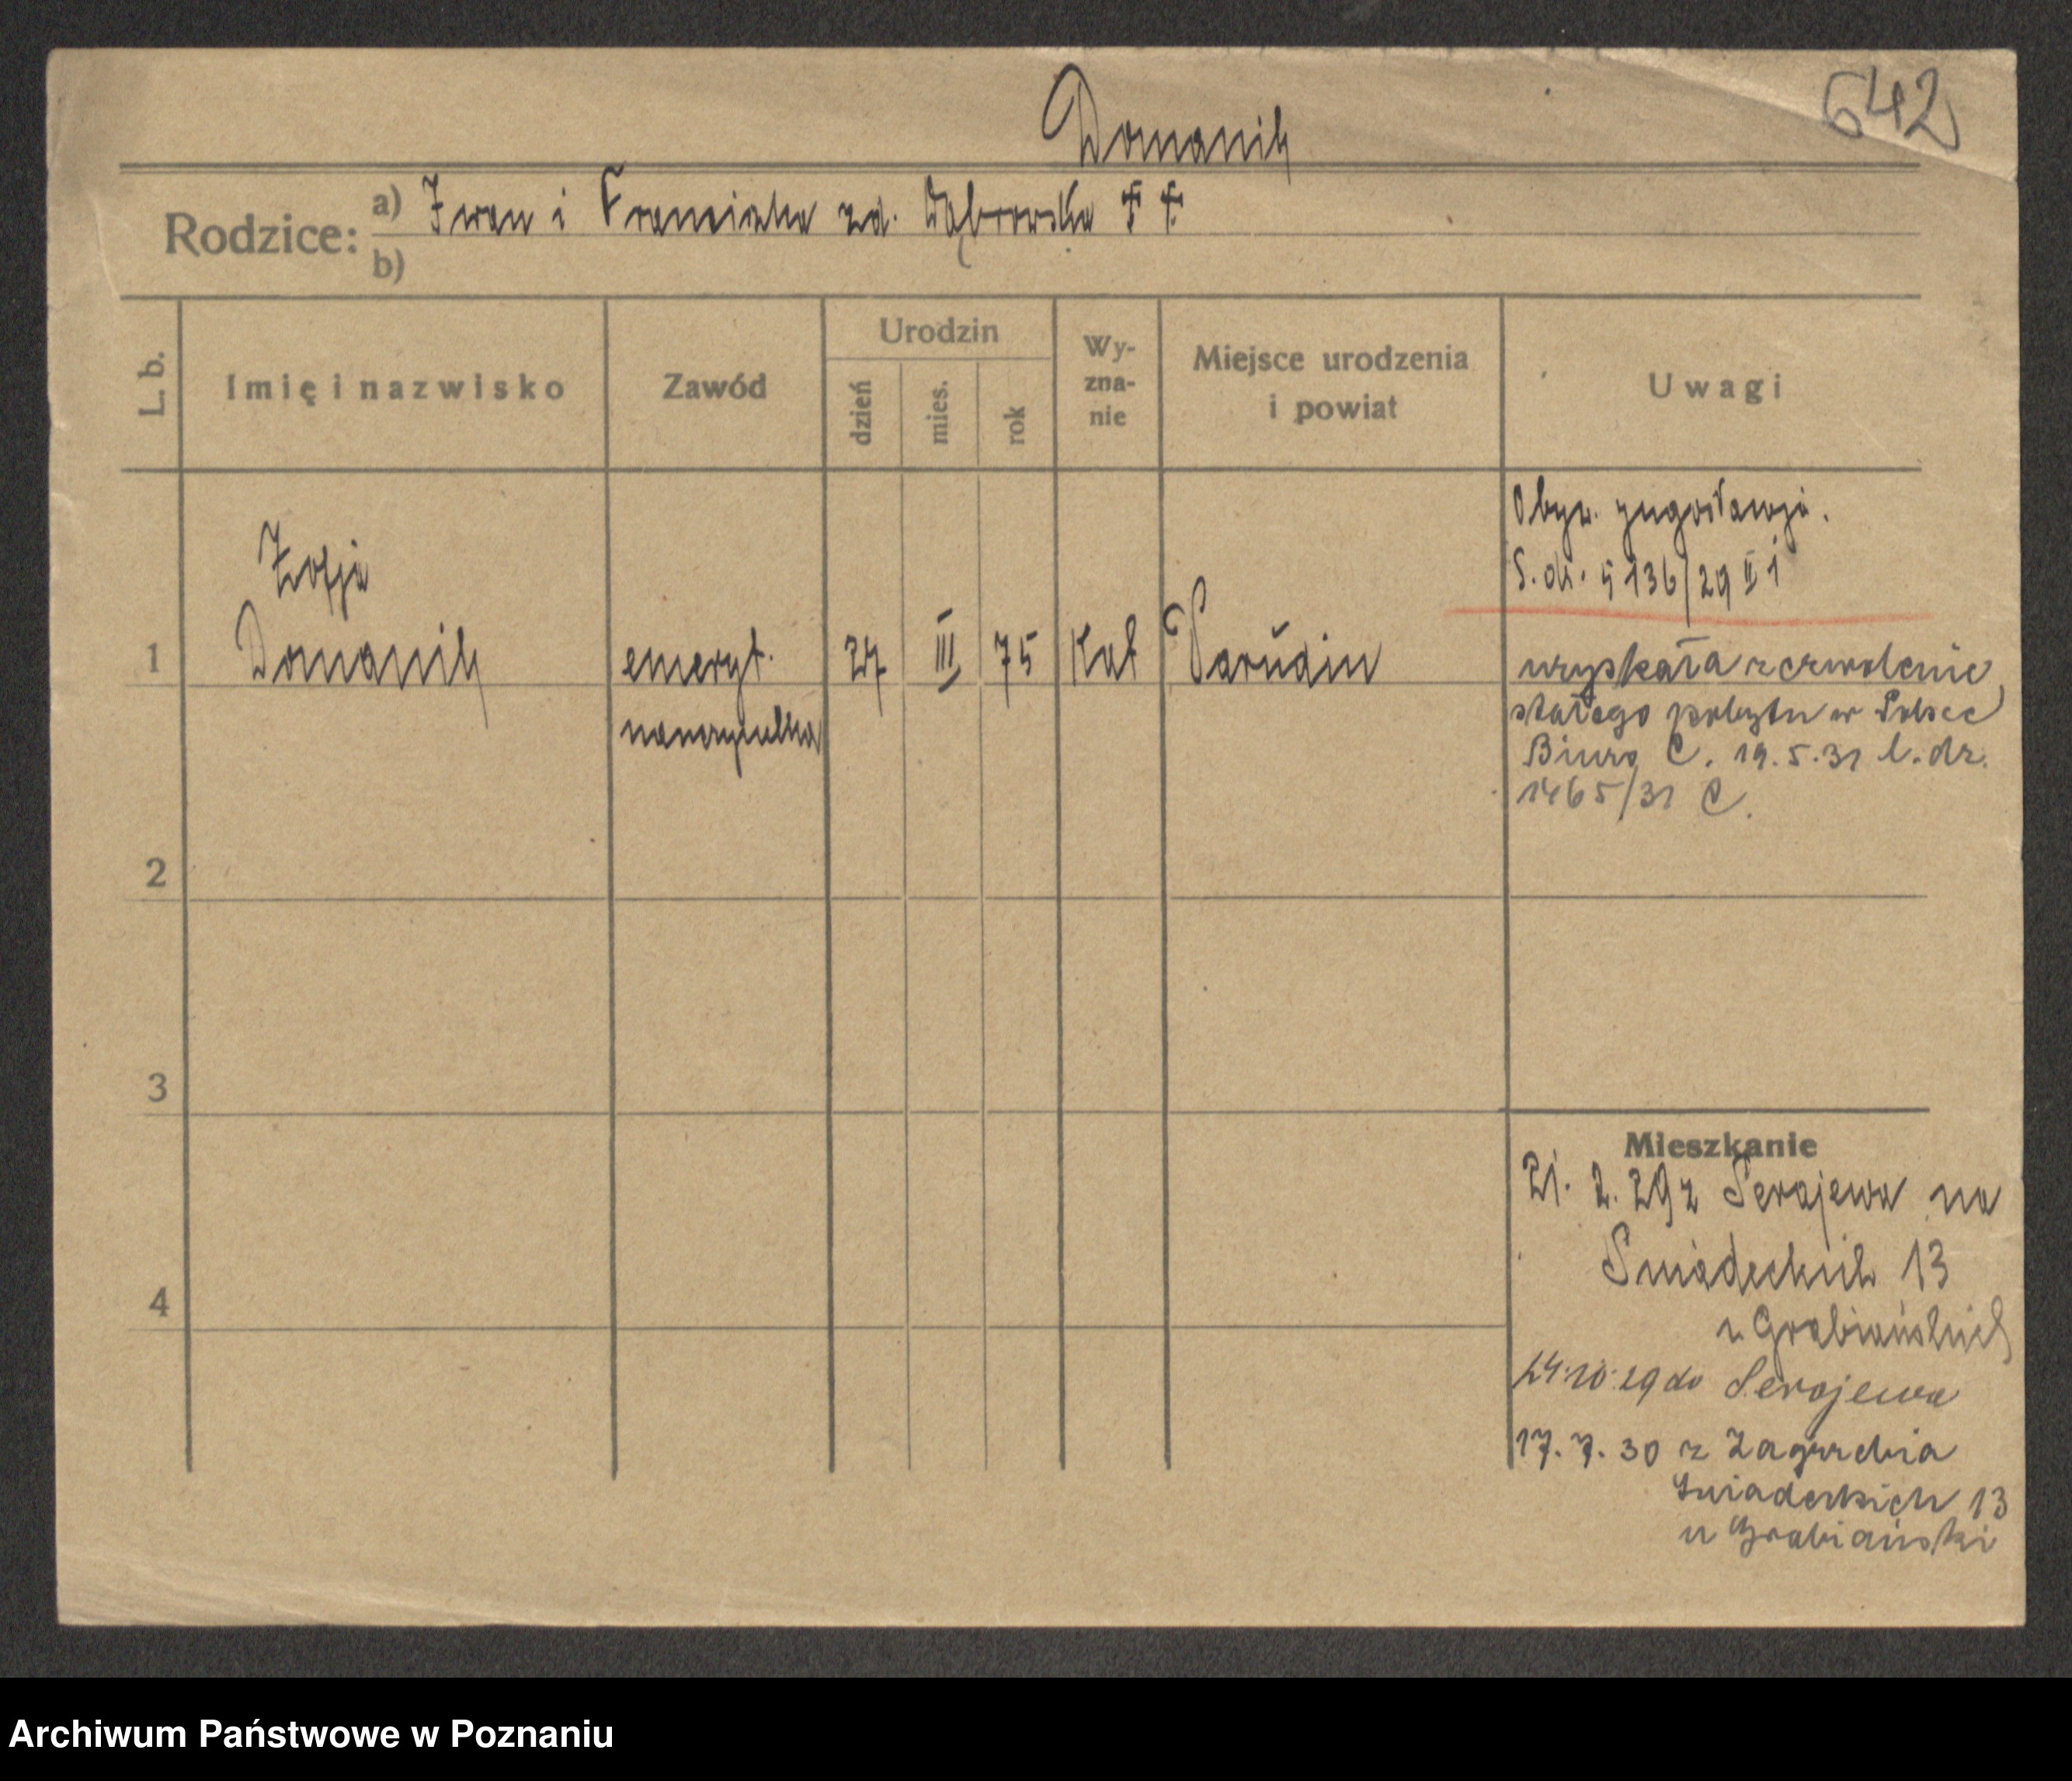 642
Domanik
Rodzice: a) Iwan i Franciszka zd. Dąbrowska ‡ ‡
b)
L. b. Imię i nazwisko Zawód Urodzin dzień mies. rok Wy-zna-nie Miejsce urodzenia i powiat Uwagi
Obyw. jugosławja.
S. dz. 5136/29 II 1
Zofja
1 Domanik emeryt. 27 III 75 Kat uzyskała zezwolenie
nauczycielka stałego pobytu w Polsce
Biuro C. 19.5.31 l. dz.
1465/31 C.
2
3
4
Mieszkanie
21. 2. 29 z Serajewa na
Śniadeckich 13
u Grabiańskich
24.10.29 do Serajewa
17. 7. 30 z Zagrebia
Śniadeckich 13
u Grabiański
Archiwum Państwowe w Poznaniu